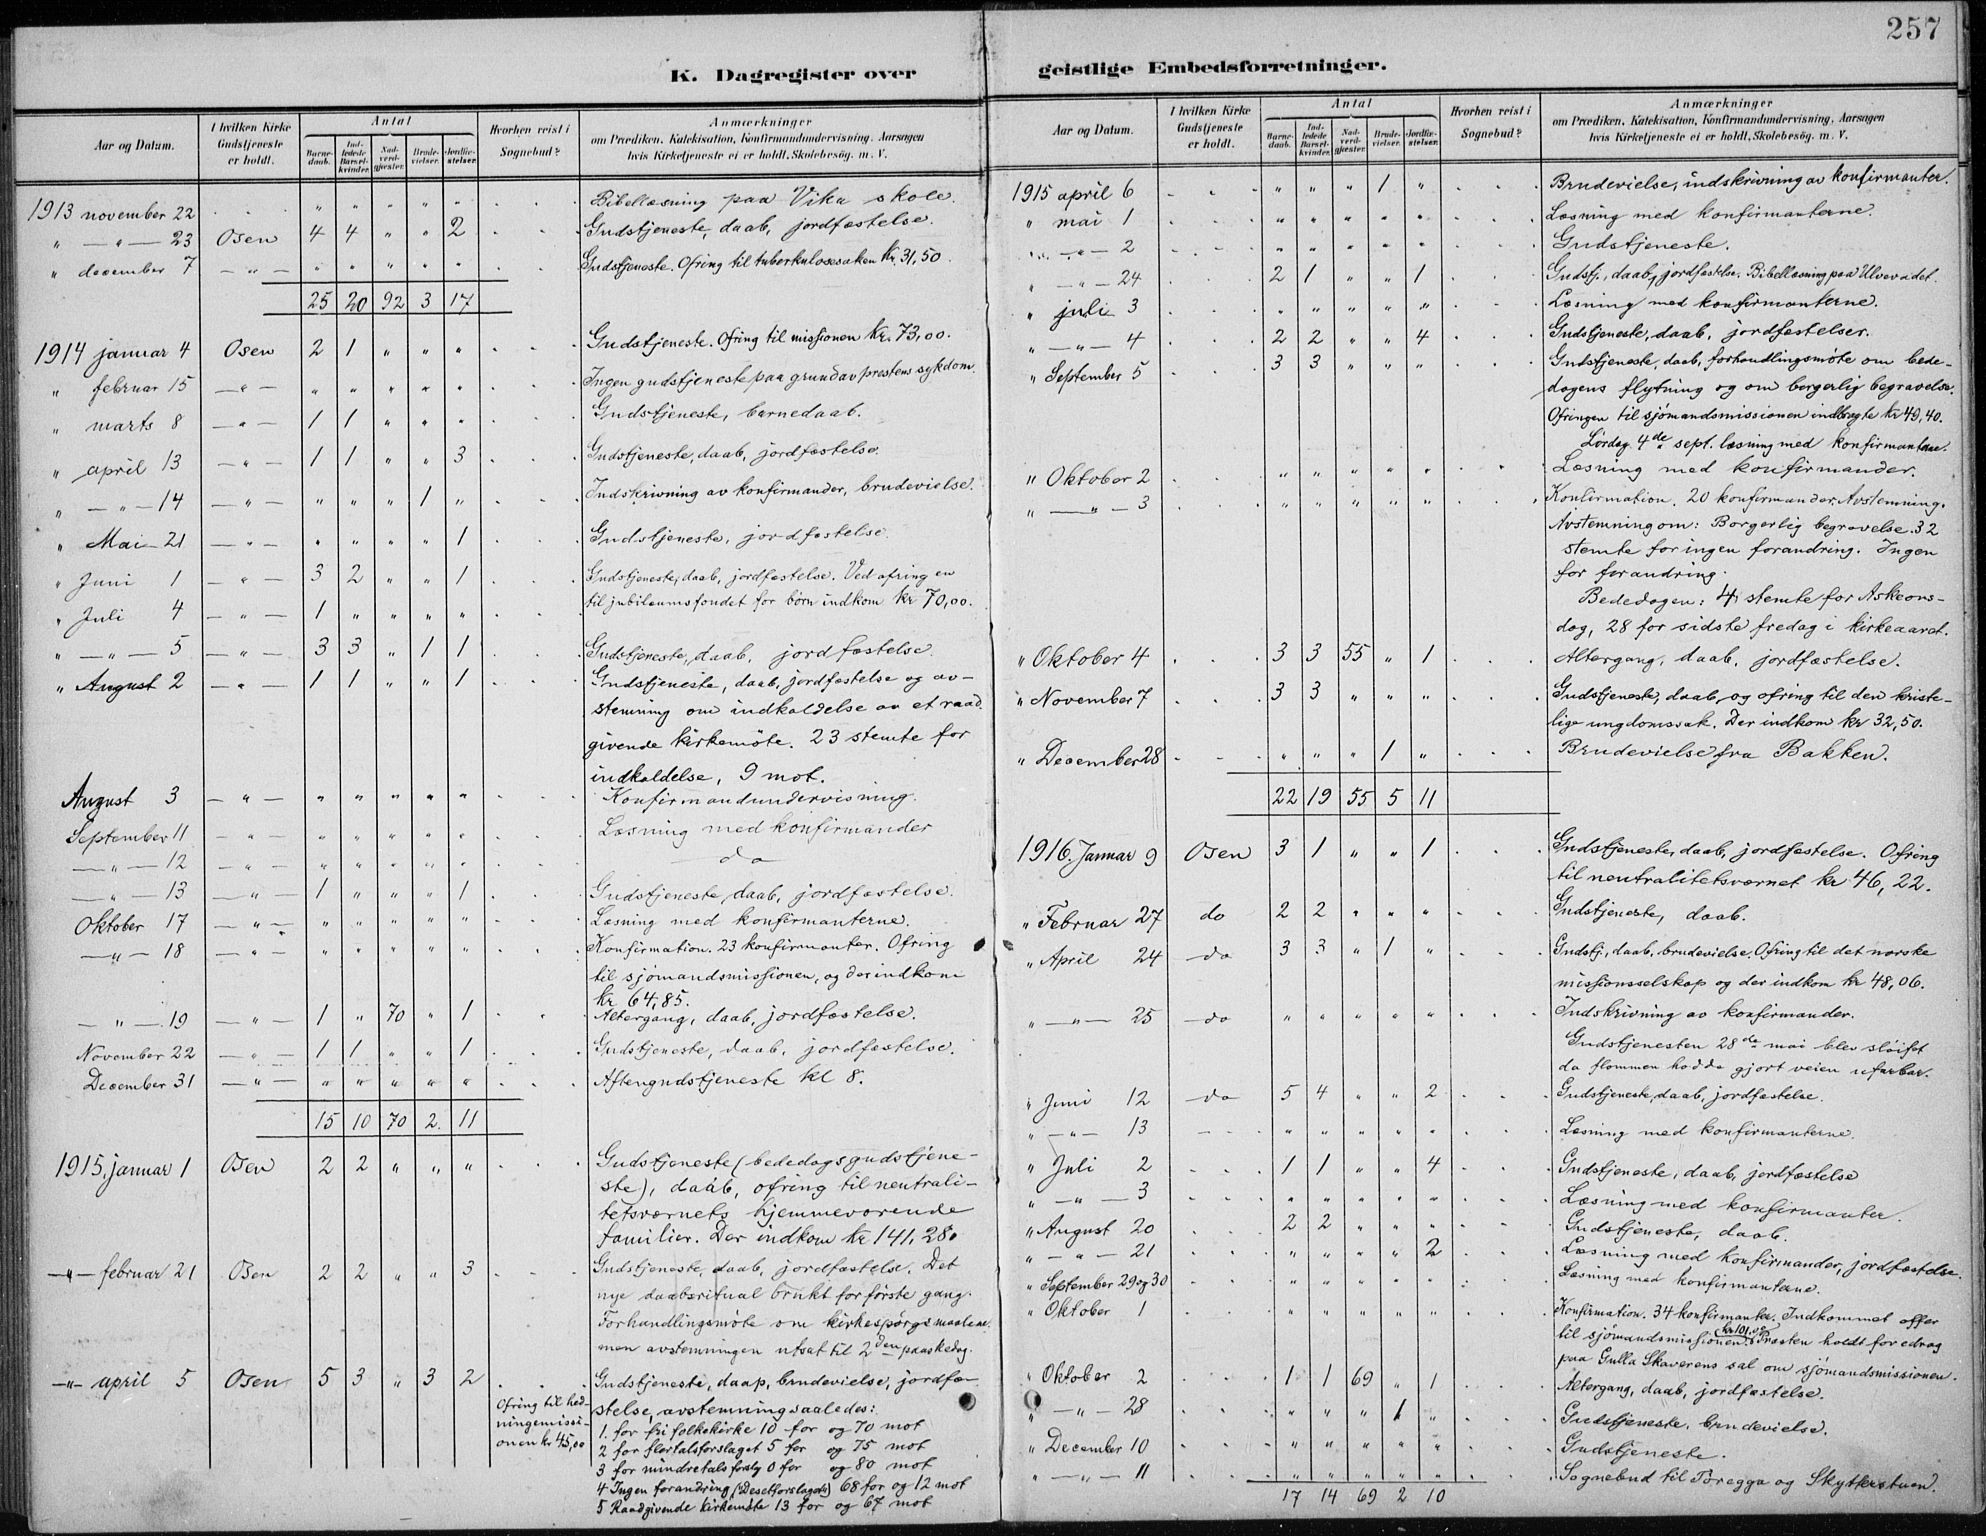 257
K. Dagregister over geistlige Embedsforretninger.
Aar og Datum. I hvilken Kirke Gudstjeneste er holdt. Antal Barnedaab. Indledede Barselkvinder. Nadverdgjester. Brudevielser. Jordfæstelser. Hvorhen reist i Sognebud? Anmærkninger om Prædiken. Katekisation, Konfirmandundervisning. Aarsagen hvis Kirketjeneste ei er holdt. Skolebesög. m. V.
1913 november 22 . . . " " " " " . . . Bibellæsning paa Vika skole.
" — " — 23 Osen 4 4 " " 2 . . . Gudstjeneste, daab, jordfæstelse.
" december 7 — " — " " " " " . . Gudstjeneste. Ofring til tuberkulosesaken kr. 31,50.
25 20 92 3 17
1914 januar 4 Osen 2 1 " " " . . . Gudstjeneste. Ofring til missionen kr. 73,00.
" februar 15 — " — " " " " " . . . Ingen gudstjeneste paa grund av prestens sykdom.
" marts 8 — " — 1 1 " " " . . Gudstjeneste, barnedaab.
" april 13 — " — 1 1 " " 3 . . . Gudstjeneste, daab, jordfæstelse.
" — " — 14 — " — " " " 1 " . . . Indskrivning av konfirmander, brudevielse.
" Mai 21 — " — " " " " 1 . . . Gudstjeneste, jordfæstelse.
" Juni 1 — " — 3 2 " " 1 . . . Gudstjeneste, daab, jordfæstelse. Ved ofring en
" Juli 4 — " — 1 " " " " . . . til jubilæumsfondet for børn indkom kr 70,00.
" — " — 5 — " — 3 3 " 1 1 . . . Gudstjeneste, daab, jordfæstelse.
" August 2 — " — 1 1 " " 1 . . . Gudstjeneste, daab, jordfæstelse og av-
stemning om indkaldelse av et raad
givende kirkemöte. 23 stemte for
indkaldelse, 9 mot.
August 3 — " — " " " " " . . . Konfirmandundervisning.
September 11 — " — " " " " " . . . Læsning med konfirmander
— " — 12 — " — " " " " " . . . do
— " — 13 — " — 1 " " " 1 . . . Gudstjeneste, daab, jordfæstelse.
Oktober 17 — " — " " " " " . . . Læsning med konfirmanterne.
— " — 18 — " — " " " " " . . . Konfirmation. 23 konfirmanter. Ofring
til sjömandsmissionen, og der indkom
kr 64,85.
— " — 19 — " — 1 " 70 " 1 . . Altergang, daab, jordfæstelse.
November 22 — " — 1 1 " " 1 . . . Gudstjeneste, daab, jordfæstelse.
December 31 — " — " " " " " . . . Aftengudstjeneste kl 8.
15 10 70 2 11
1915. januar 1 Osen 2 2 " " " . . . Gudstjeneste (bededagsgudstjene-
ste), daab, ofring til neutrali-
tetsværnets hjemmeværende
familier. Der indkom kr 141,28.
— " — februar 21 Osen 2 2 " " 3 . . . Gudstjeneste, daab, jordfæstelse. Det
nye daabsritual brukt for første gang.
Forhandlingsmöte om kirkespörgsmaalene
men avstemningen utsat til 2den paaskedag.
— " — april 5 Osen 5 3 " 3 2 . . . Gudstjeneste, daap, brudevielse, jordfæ-
Ofring til hed-
ningemissi-
onen kr 45,00
stelse, avstemning saaledes:
1. for fri folkekirke 10 for og 70 mot
2 for flertalsforslaget 5 for og 75 mot
3 for mindretals forslag 0 for og 80 mot
4 Ingen forandring (Desetforslaget) 68 for og 12 mot
5 Raadgivende kirkemöte 13 for og 67 mot
Aar og Datum. I hvilken Kirke Gudstjeneste er holdt. Antal Barnedaab. Indledede Barselkvinder. Nadverdgjester. Brudevielser. Jordfæstelser. Hvorhen reist i Sognebud? Anmærkninger om Prædiken. Katekisation, Konfirmandundervisning. Aarsagen hvis Kirketjeneste ei er holdt. Skolebesög. m. V.
1915 april 6 . . " " " 1 " . . . Brudevielse, indskrivning av konfirmanter.
" mai 1 . . . " " " " " . . . Læsning med konfirmanterne.
" — " — 2 . . . " " " " " . . . Gudstjeneste.
" — " — 24 . . . 2 1 " " 1 . . . Gudstj., daab, jordfæstelse. Bibellæsning paa Ulvevadet.
" juli 3 . . . " " " " " . . . Læsning med konfirmanterne.
" — " — 4 . . . 2 2 " " 4 . . . Gudstjeneste, daab, jordfæstelser.
" September 5 . . . 3 3 " " " . . . Gudstjeneste, daab, forhandlingsmöte om bede-
dagens flytning og om borgerlig begravelse.
Ofringen til sjömandsmissionen indbragte kr 49,40.
Lördag 4de sept. læsning med konfirmanterne.
" Oktober 2 . . . " " " " " . . Læsning med konfirmander.
" — " — 3 . . . " " " " " . . . Konfirmation. 20 konfirmander. Avstemning.
Avstemning om: Borgerlig begravelse. 32
stemte for ingen forandring. Ingen
for forandring.
Bededagen: 4 stemte for Askeons-
dag, 28 for sidste fredag i kirkeaaret.
" Oktober 4 . . . 3 3 55 " 1 . . . Altergang, daab, jordfæstelse.
" November 7 . . . 3 3 " " " . . . Gudstjeneste, daab, og ofring til den kriste-
lige ungdomssak. Der indkom kr 32,50.
" December 28 . . . " " " 1 " . . . Brudevielse fra Bakken.
22 19 55 5 11
1916. Januar 9 Osen 3 1 " " 1 . . . Gudstjeneste, daab, jordfæstelse. Ofring
til neutralitetsværnet kr 46,22.
" Februar 27 do 2 2 " " " . . . Gudstjeneste, daab.
" April 24 do 3 3 " 1 " . . . Gudstj., daab, brudevielse. Ofring til det norske
missionsselskap og der indkom kr 48,06.
" — " — 25 do " " " " " . . . Indskrivning av konfirmander.
Gudstjenesten 28de mai blev slöifet
da flommen hadde gjort veien ufarbar.
" Juni 12 do 5 4 " " 2 . . . Gudstjeneste, daab, jordfæstelse.
" — " — 13 - - - " " " " " . . . Læsning med konfirmanterne.
" Juli 2 . . . 1 1 " " 4 . . . Gudstjeneste, daab, jordfæstelse
" — " — 3 . . . " " " " " . . . Læsning med konfirmanter.
" August 20 . . . 2 2 " " " . . . Gudstjeneste, daab.
" — " — 21 . . . " " " " 2 . . . Læsning med konfirmander, jordfæstelse.
" September 29 og 30 . . " " " " " . . . Læsning med konfirmanterne.
" Oktober 1 . . . " " " " " . . . Konfirmation. 34 konfirmanter. Indkommet offer
til sjömandsmissionen kr 101.00. Præsten holdt foredrag
paa Gulla Skaverens sal om sjömandsmissionen.
" Oktober 2 . . . 1 1 69 " 1 . . . Altergang, daab, jordfæstelse.
" — " — 28 . . . " " " 1 " . . . Gudstjeneste, brudevielse.
" December 10 . . . " " " " " . . . Gudstjeneste.
" — " — 11 . . . " " " " " . . . Sognebud til Töregga og Skytterstuen.
17 14 69 2 10